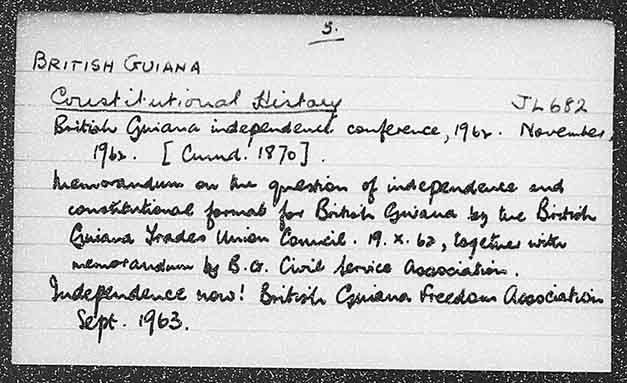 3.
BRITISH GUIANA
Constitutional History JL682
British Guiana independence conference, 1962. November,
1962. [Cmnd. 1870].
Memorandum on the question of independence and
constitutional format for British Guiana by the British
Guiana Trades Union Council. 19.X.62, together with
memorandum by B.G. Civil Service Association.
Independence now! British Guiana Freedom Association
Sept. 1963.